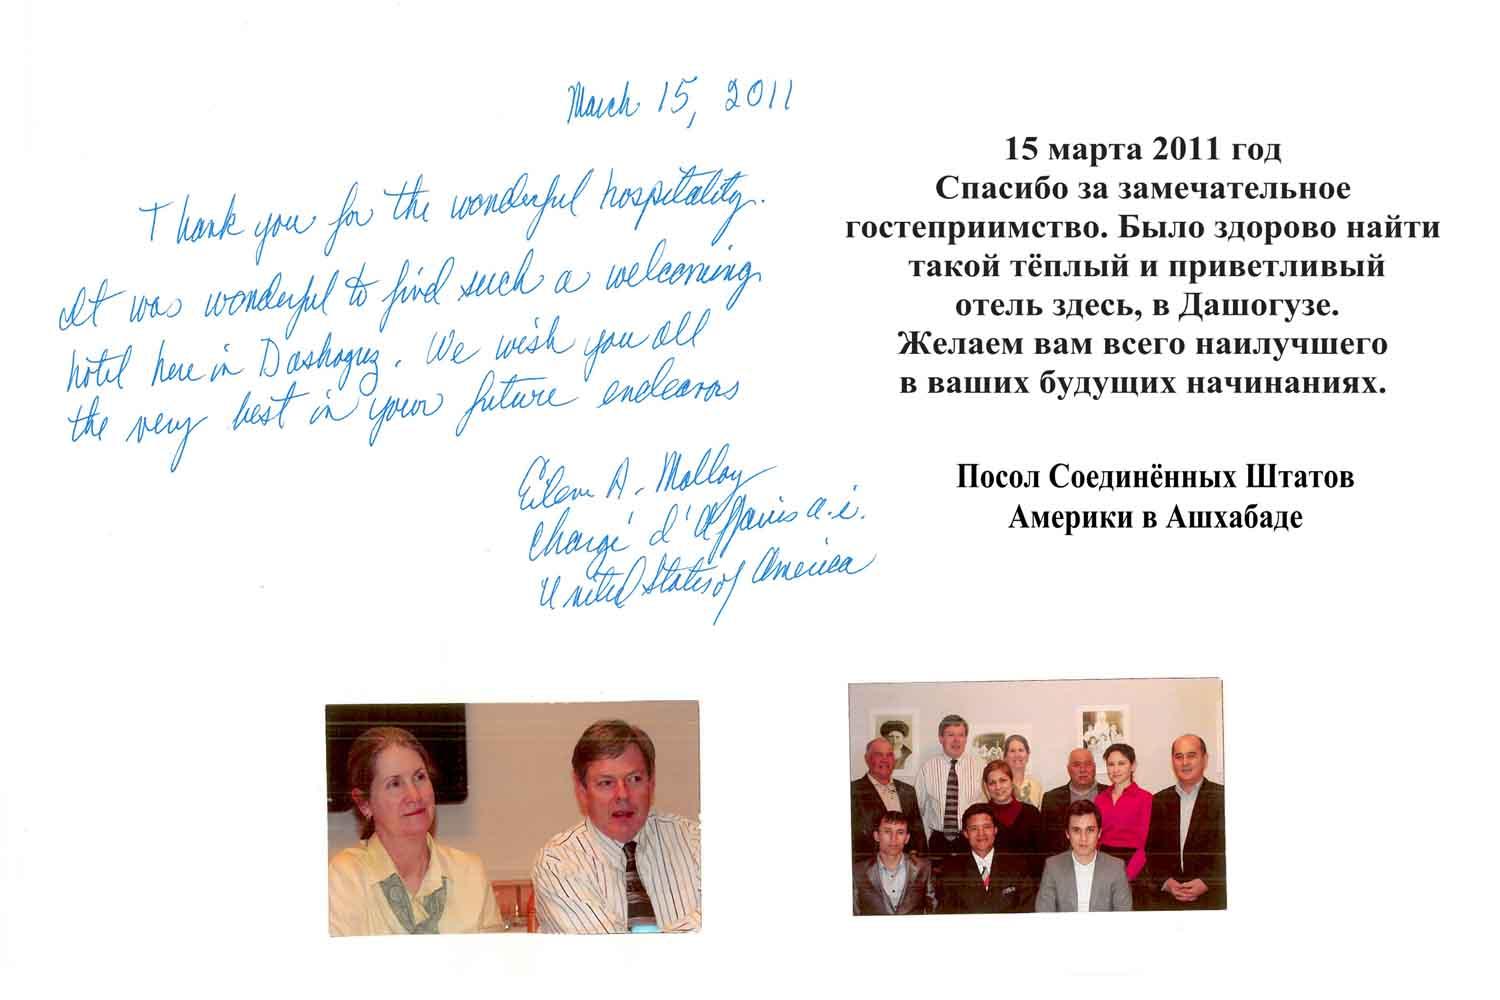 March 15, 2011
Thank you for the wonderful hospitality.
It was wonderful to find such a welcoming
hotel here in Dashoguz. We wish you all
the very best in your future endeavors
Eileen A. Malloy
Chargé d'Affaires a.i.
United States of America
15 марта 2011 год
Спасибо за замечательное
гостеприимство. Было здорово найти
такой тёплый и приветливый
отель здесь, в Дашогузе.
Желаем вам всего наилучшего
в ваших будущих начинаниях.
Посол Соединённых Штатов
Америки в Ашхабаде